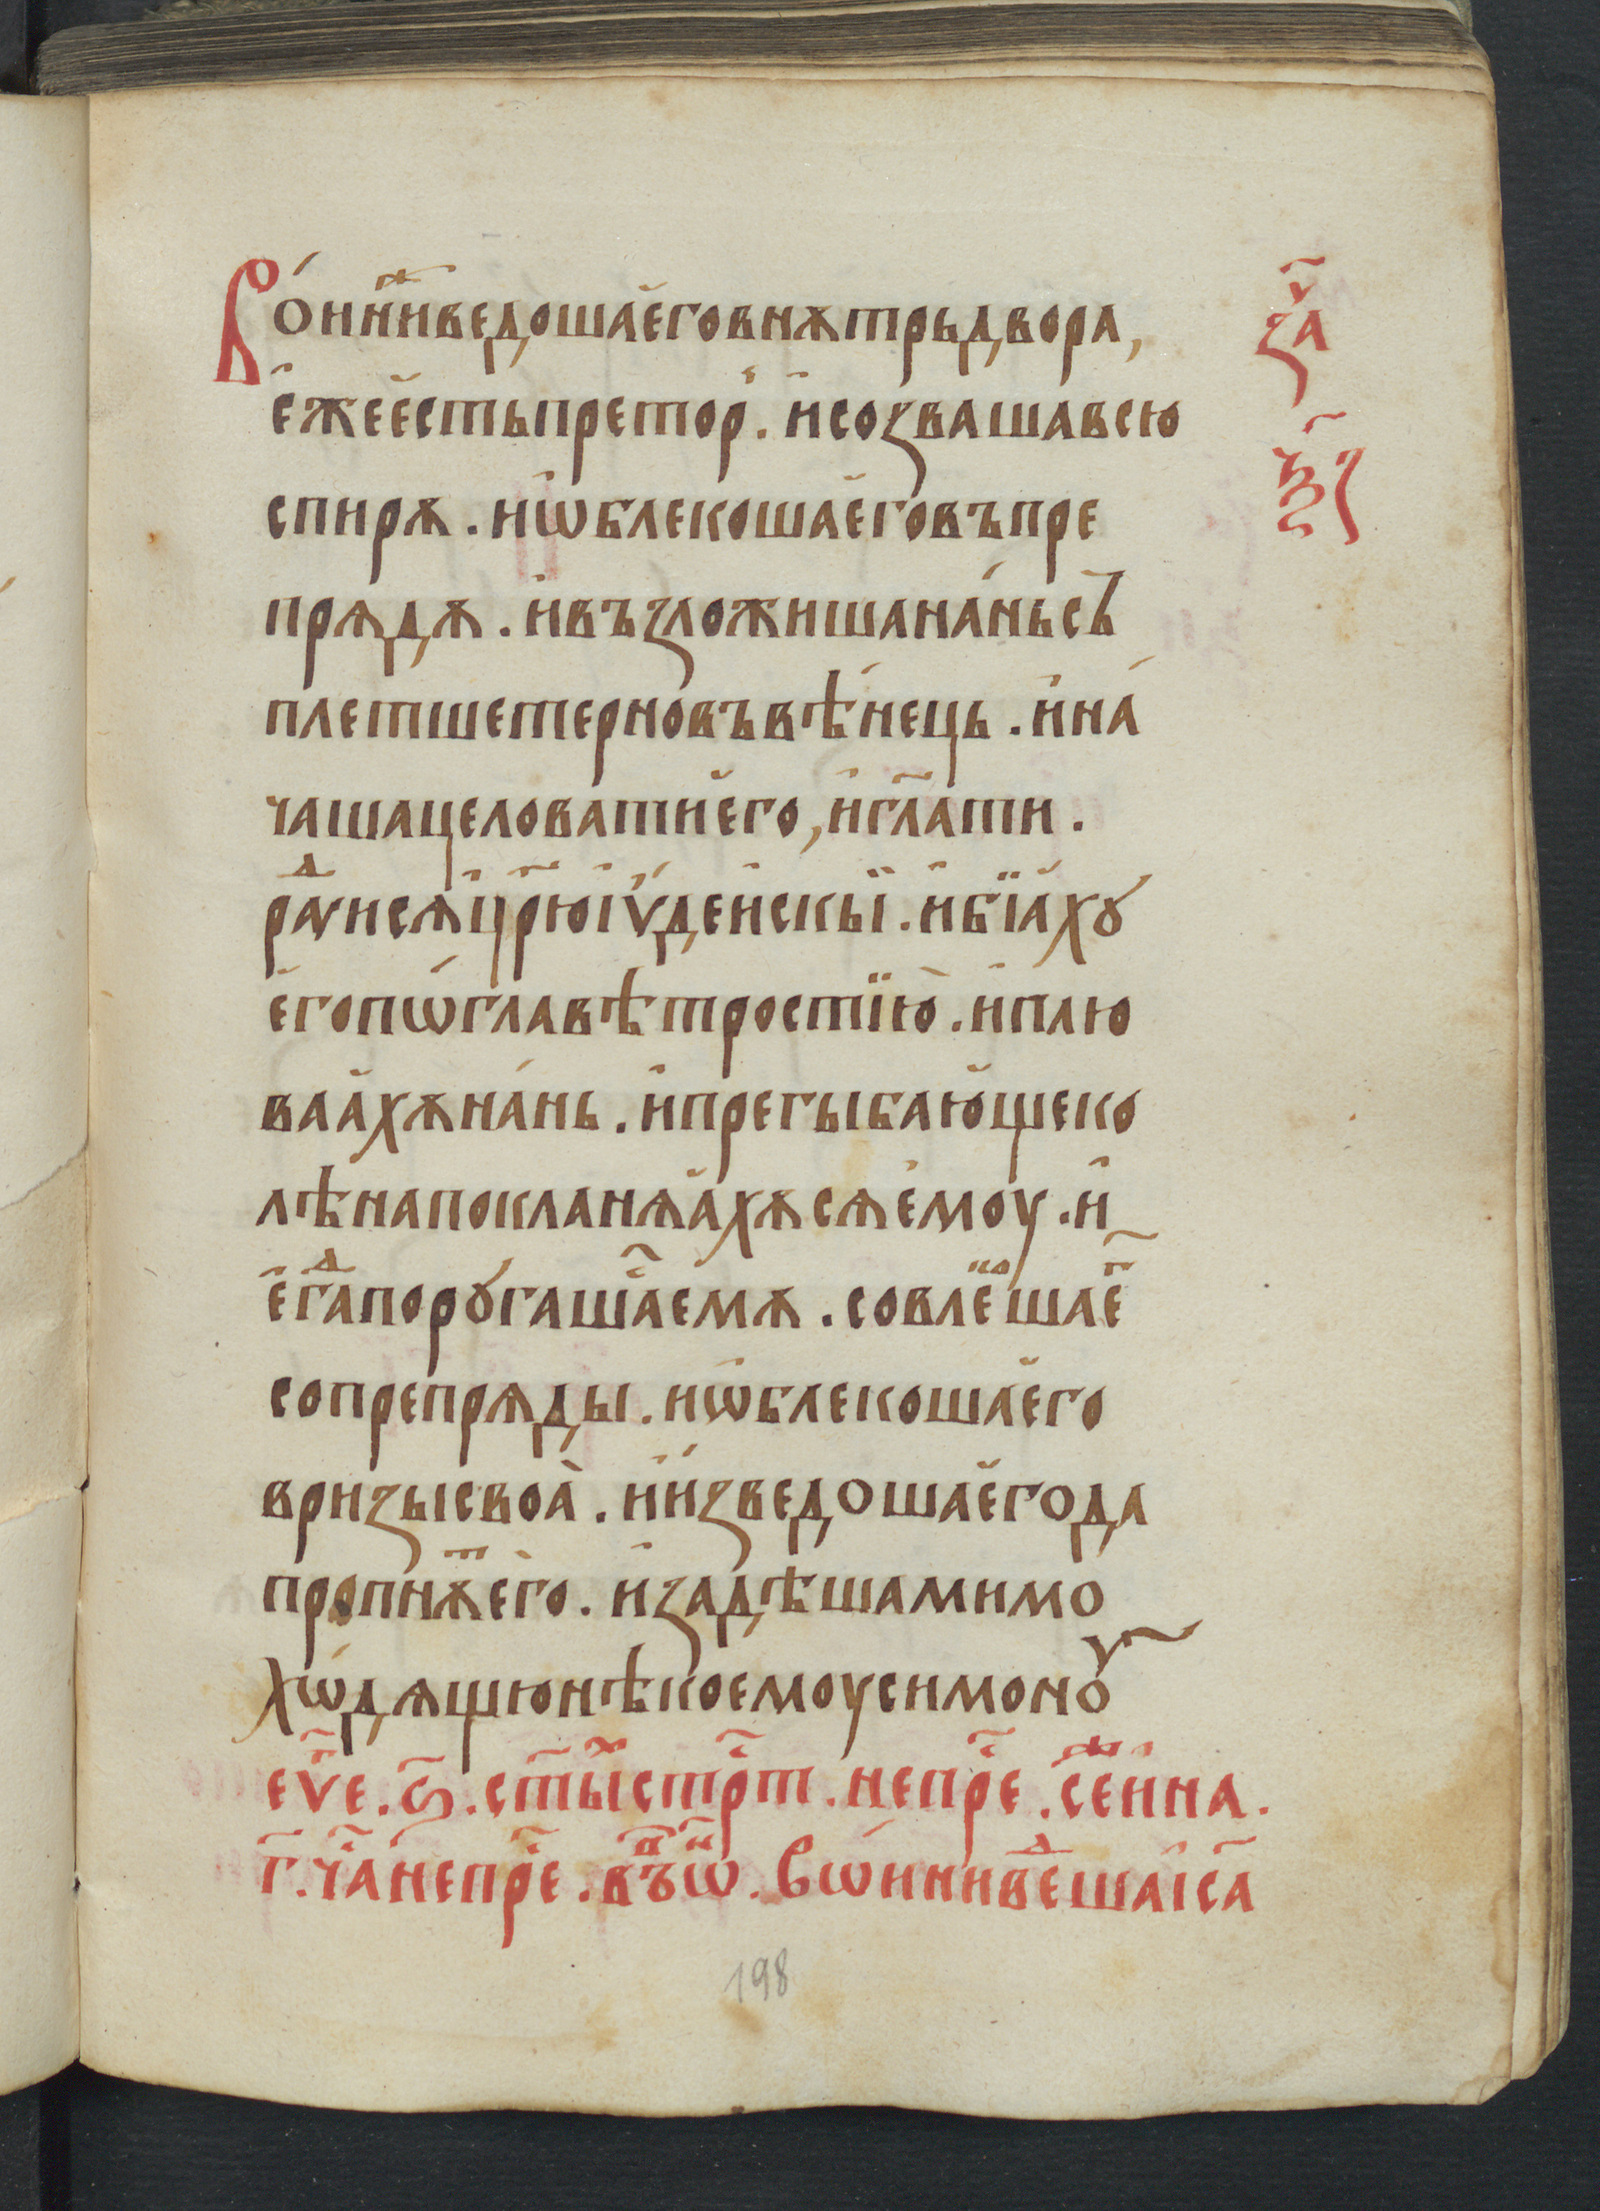 Во́иниⷤведоша҆е҆говнѫтрьдвора,
за҃ⷱ҇
є҆жеє҆стьпретор. и҆созвашавсю
ѯ҃з
спирѫ. и҆ѡблекоша҆е҆говъпре
прѧдѫ. и҆възложишана́ньсъ
плетшетерновъвѣ́нець. и҆на́
чашацеловатие҆го, и҆гл҃ати.
раⷣуисѧц҃рюі҆ѵ́де́искыї. и҆бїа҆хꙋ
е҆гопѡ́главѣтростїю҆. и҆плю
ваа҆хѫна́нь. и҆прегыбаю҆щеко
лѣнапокланѧа҆хѫсѧе҆моу. и҆
є҆гⷣапорꙋгашаⷭ҇емѫ. совлеⷦ҇шаеⷢ҇
сопрепрѧды. и҆ѡ҆блекоша҆е҆го
вризысвоѧ҆. и҆и҆зведоша҆е҆года
пропнѫⷮе҆го. и҆задѣшамимо
хѡ́дѧщюнѣкоемоусимонꙋ҃
еѵⷢ҇е. ѕ҃. ст҃ыⷯстрⷭ҇т. непрⷭ҇е. сщ҃еⷩ҇на.
г҃. чⷭ҇а непрⷭ҇е. въѡⷩ҇. Вѡ́инивеⷣшаі҆с҃а
198